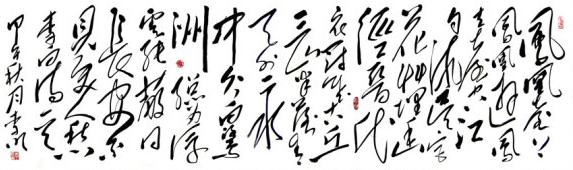 鳳凰臺上
鳳凰遊鳳
去臺空江
自流吳宮
花草埋幽
徑晉代
衣冠成古丘
三山半落青
天外二水
中分白鷺
洲總為浮
雲能蔽日
長安不
見使人愁
李白詩
甲午秋月李